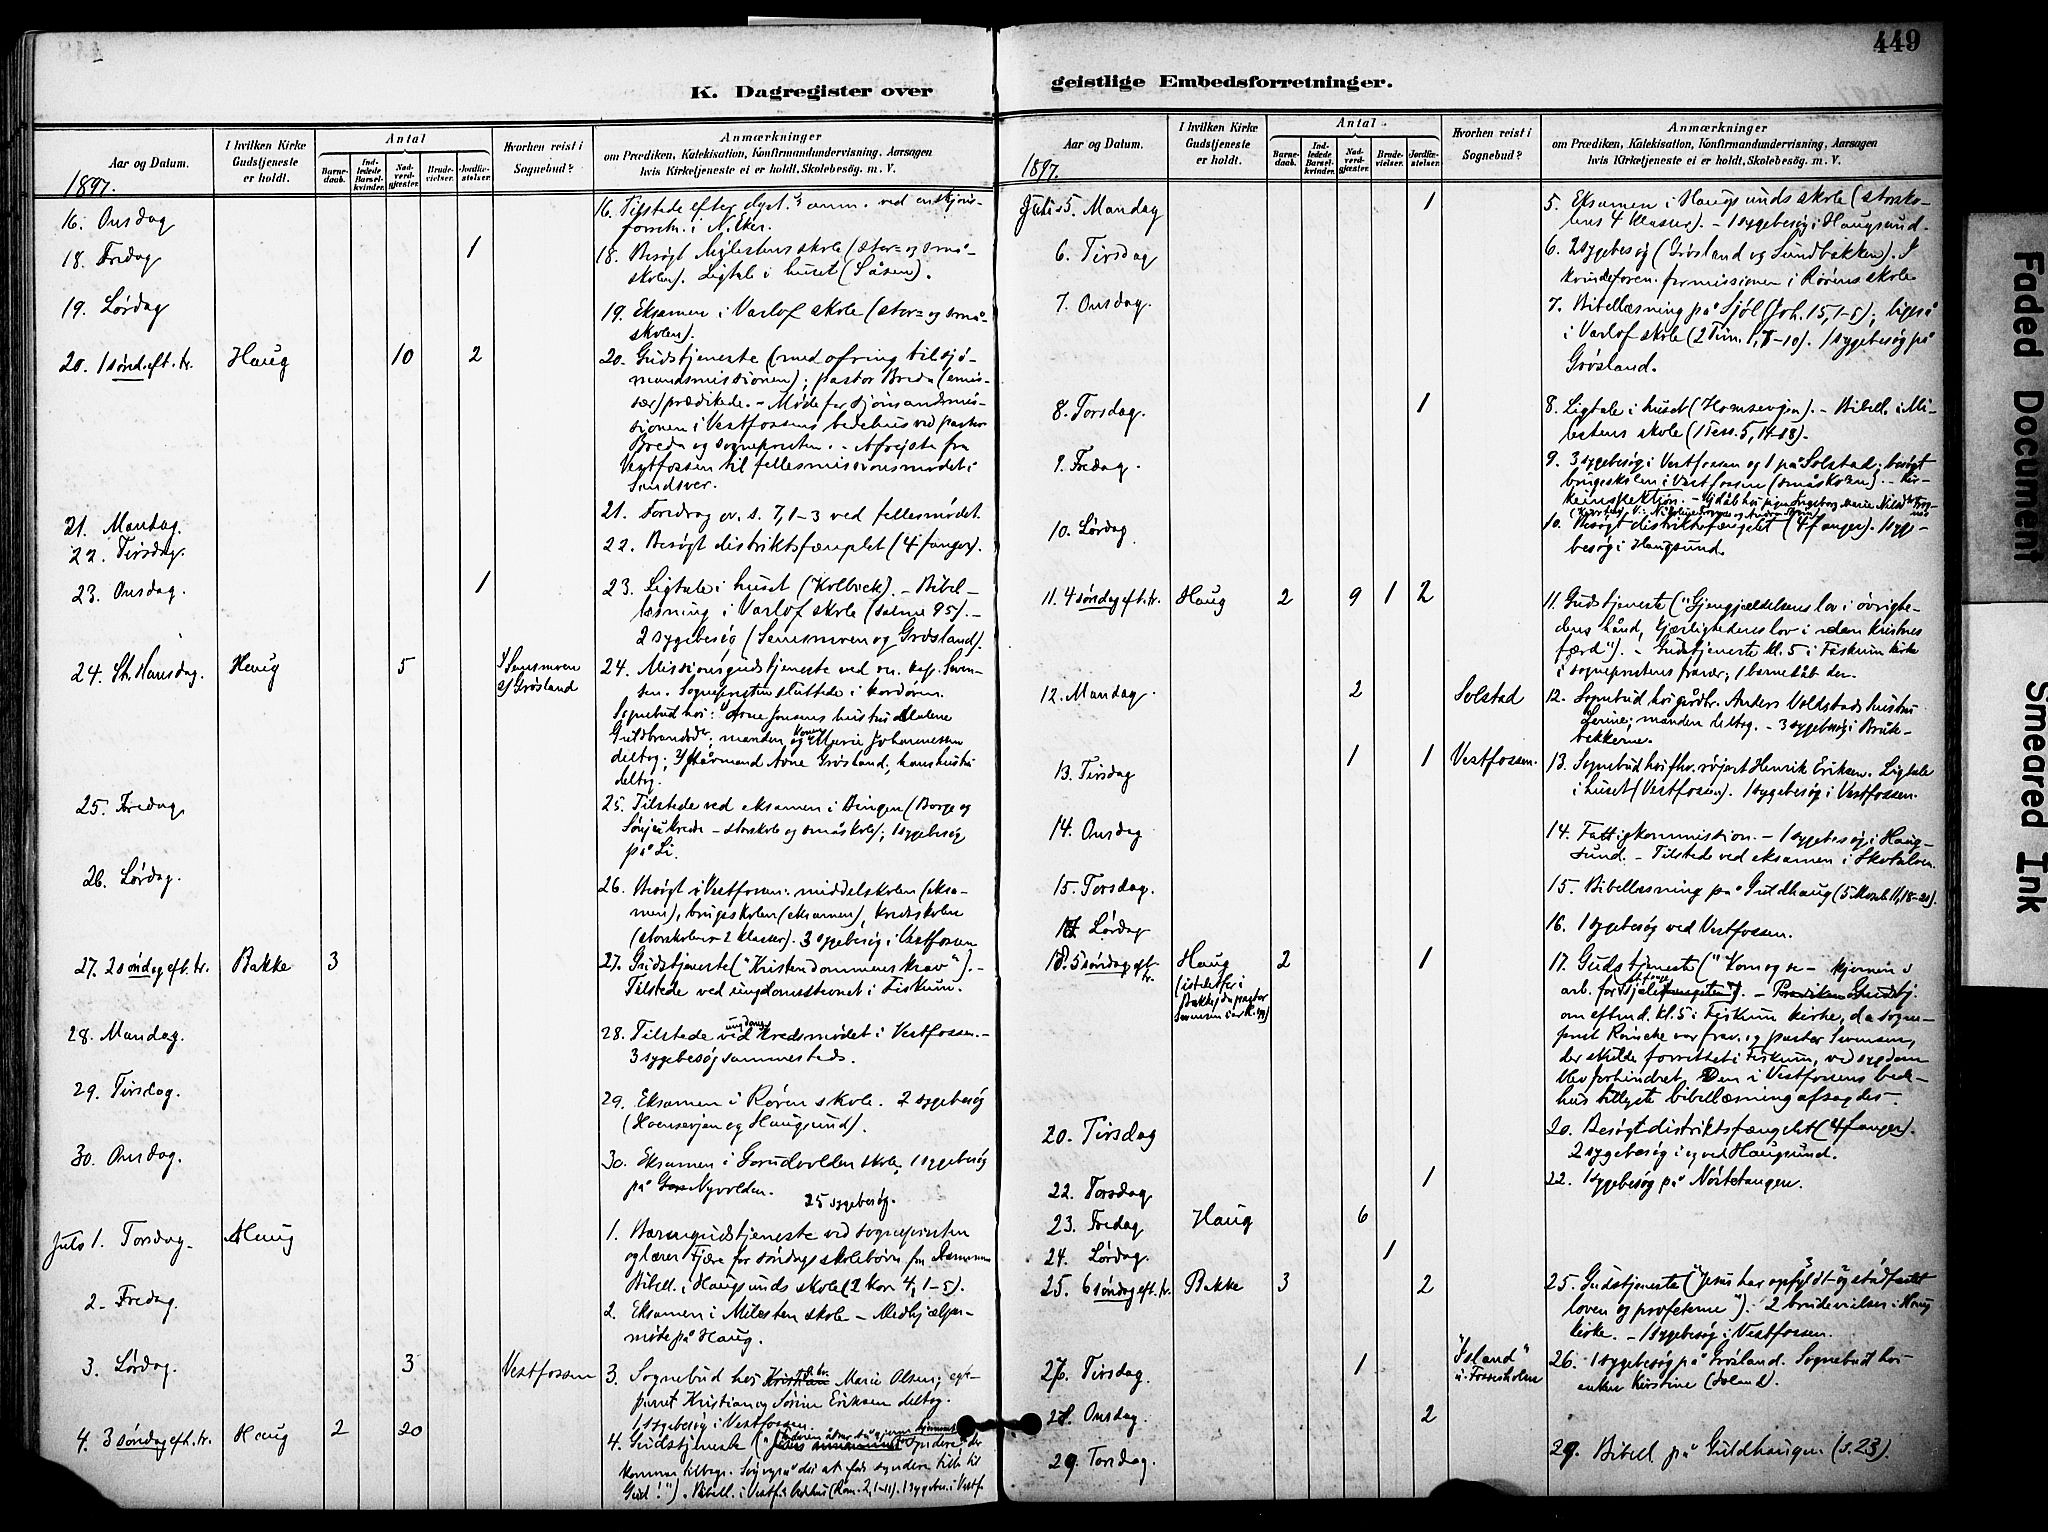 449
K. Dagregister over
Aar og Datum.
I hvilken Kirke Gudstjeneste er holdt.
Antal
Barnedaab.
Indledede Barselkvinder.
Nadverdgjæster.
Brudevielser.
Jordfæstelser.
Hvorhen reist i Sognebud?
Anmærkninger
om Prædiken, Katekisation, Konfirmandundervisning, Aarsagen
hvis Kirketjeneste ei er holdt, Skolebesøg. m. V.
1897.
16. Onsdag
16. Tilstede efter
i N. Eker.
18. Fredag 1
18. Besøgt Milestens skole (stor- og små-
skolen). Ligtale i huset (Såsen).
19. Lørdag
19. Eksamen i Varlof skole (stor- og små-
skolen).
20. 1 sønd. eft. tr. Haug 10 2
20. Gudstjeneste (med ofring til sjø-
mandsmissionen); pastor Breda (emis-
sær) prædikede. - Møde for sjømandsmis-
sionen i Vestfossens bedehus ved pastor
Breda og sogneprsten. - Afrejste fra
Vestfossen til fellesmissionsmødet i
Sandsver.
21. Mandag.
21. Foredrag ov. s. 7, 1-3 ved fellesmødet.
22. Tirsdag.
22. Besøgt distriktsfængslet (4 fanger).
23. Onsdag. 1
23. Ligtale i huset (Kolbæck). - Bibel-
læsning i Varlof skole (salme 95). -
2 sygebesøg (Sensmoen og Grøsland).
24. St. Hansdag. Haug 5
1/ Sensmoen
2/ Grøsland
24. Missionsgudstjeneste ved
sen. Sogneprsten sluttede i kordøren.
Sognebud hos: 1/ Arne Jonsens hustru Malene
Guldbrandsdr; manden og Marie Johannessen
deltog; 2/ kårmand Arne Grøsland, hans hustru
deltog.
25. Fredag
25. Tilstede ved eksamen i Bingen (Borge og
- storskole og småskole); 1 sygebesøg
på Li.
26. Lørdag.
26. Besøgt i Vestfossen: middelskolen (eksa-
men), brugsskolen (eksamen), kredsskolen
(storskolens 2 klasser). 3 sygebesøg i Vestfossen
27. 2 søndag eft. tr. Bakke 3
27. Gudstjeneste ("Kristendommens krav"). -
Tilstede ved ungdomsstevnet i Fiskum.
28. Mandag.
28. Tilstede ved ungdoms kredsmødet i Vestfossen. -
3 sygebesøg sammesteds.
29. Tirsdag.
29. Eksamen i Røren skole. 2 sygebesøg
(Hoensvejen og Haugsund).
30. Onsdag.
30. Eksamen i Gorudvolden skole; 1 sygebesøg
på Nyvolden.
25 sygebesøg.
Juli 1. Torsdag. Haug
1. Barnegudstjeneste ved sogneprsten
og lærer Fjære for søndagsskolebørn fra
Bibell. i Haugsunds skole (2 Kor 4, 1-5).
2. Fredag.
2. Eksamen i Milesten skole - Medhjælper-
møde på Haug.
3. Lørdag. 3 Vestfossen
3. Sognebud hos Marie Olsen; egte-
parret Kristian og Sørine Eriksen deltog.
1 sygebesøg i Vestfossen.
4. 3 søndag eft. tr. Haug 2 20
4. Gudstjeneste
Gud!"). Bibell. i Vestf.s bedehus (Rom. 2, 1-11). 1 sygebes. i Vestf.
geistlige Embedsforretninger.
Aar og Datum.
I hvilken Kirke Gudstjeneste er holdt.
Antal
Barnedaab.
Indledede Barselkvinder.
Nadverdgjæster.
Brudevielser.
Jordfæstelser.
Hvorhen reist i Sognebud?
Anmærkninger
om Prædiken, Katekisation, Konfirmandundervisning, Aarsagen
hvis Kirketjeneste ei er holdt, Skolebesøg. m. V.
1897.
Juli 5. Mandag 1
5. Eksamen i Haugsunds skole (storsko-
lens 4 klasser). - 1 sygebesøg i Haugsund.
6. Tirsdag
6. 2 sygebesøg (Grøsland og Sundbakken). I
kvindeforen. for missionen i Rørens skole
7. Onsdag.
7. Bibellæsning på Sjøl (Joh. 15, 1-8); ligeså
i Varlof skole (2 Tim. 1, 8-10). 1 sygebesøg på
Grøsland.
8. Torsdag. 1
8. Ligtale i huset (Hoensvejen). - Bibell. i Mi-
lestens skole (1 Tess. 5, 14-23).
9. Fredag.
9. 3 sygebesøg i Vestfossen og 1 på Solstad; besøgt
brugsskolen i Vestfossen (småskolen). - Kir-
keinspektion.
10. Lørdag
10. Besøgt distriktsfængslet (4 fanger). 1 syge-
besøg i Haugsund.
11. 4 søndag eft. tr. Haug 2 9 1 2
11. Gudstjeneste ("Gjengjældelsens lov i øvrighe-
dens hånd, kjærlighedens lov i den kristnes
færd"). - Gudstjeneste kl. 5 i Fiskum kirke
i sogneprstens fravær; 1 barnedåb der.
12. Mandag. 2 Solstad
12. Sognebud hos gårdbr. Anders Voldstads hustru
Lerine; manden deltog. - 3 sygebesøg i Bruk-
bakkerne.
13. Tirsdag 1 1 Vestfossen.
13. Sognebud hos Henrik Eriksen. Ligtale
i huset (Vestfossen). 1 sygebesøg i Vestfossen.
14. Onsdag
14. Fattigkommission. - 1 sygebesøg i Haug-
sund. - Tilstede ved eksamen i Skotselven.
15. Torsdag.
15. Bibellæsning på Guldhaug (5 Moseb. 11, 18-21).
17. Lørdag
16. 1 sygebesøg ved Vestfossen.
18. 5 søndag eft. tr.
Haug
(istedetfor i
Bakke, da pastor
Svensen var
2 1
17. Gudstjeneste ("Kom og se - kjernen i
arb. for
om efterm. kl. 5 i Fiskum kirke, da sogne-
prst Reincke var frav. og pastor Svensen,
der skulde forrettet i Fiskum, ved sygdom
blev forhindret. Den i Vestfossens bede-
hus tillyste bibellæsning afsagdes.
20. Tirsdag
20. Besøgt distriktsfængslet (4 fanger).
2 sygebesøg i og ved Haugsund.
22. Torsdag 1
22. 1 sygebesøg på Nøstetangen.
23. Fredag Haug 6
24. Lørdag. 1
25. 6 søndag eft. tr. Bakke 3 2
25. Gudstjeneste ("Jesus har opfyldt og stadfæstet
loven og profeterne"). 2 brudevielser i Haug
kirke. - 1 sygebesøg i Vestfossen.
27. Tirsdag. 1
"Island"
u. Fossesholm
26. 1 sygebesøg på Grøsland. Sognebud hos
enken Kirstine (Island).
28. Onsdag 2
29. Torsdag.
29. Bibell. på Guldhaugen (s. 23).
Faded Document
Smeared Ink